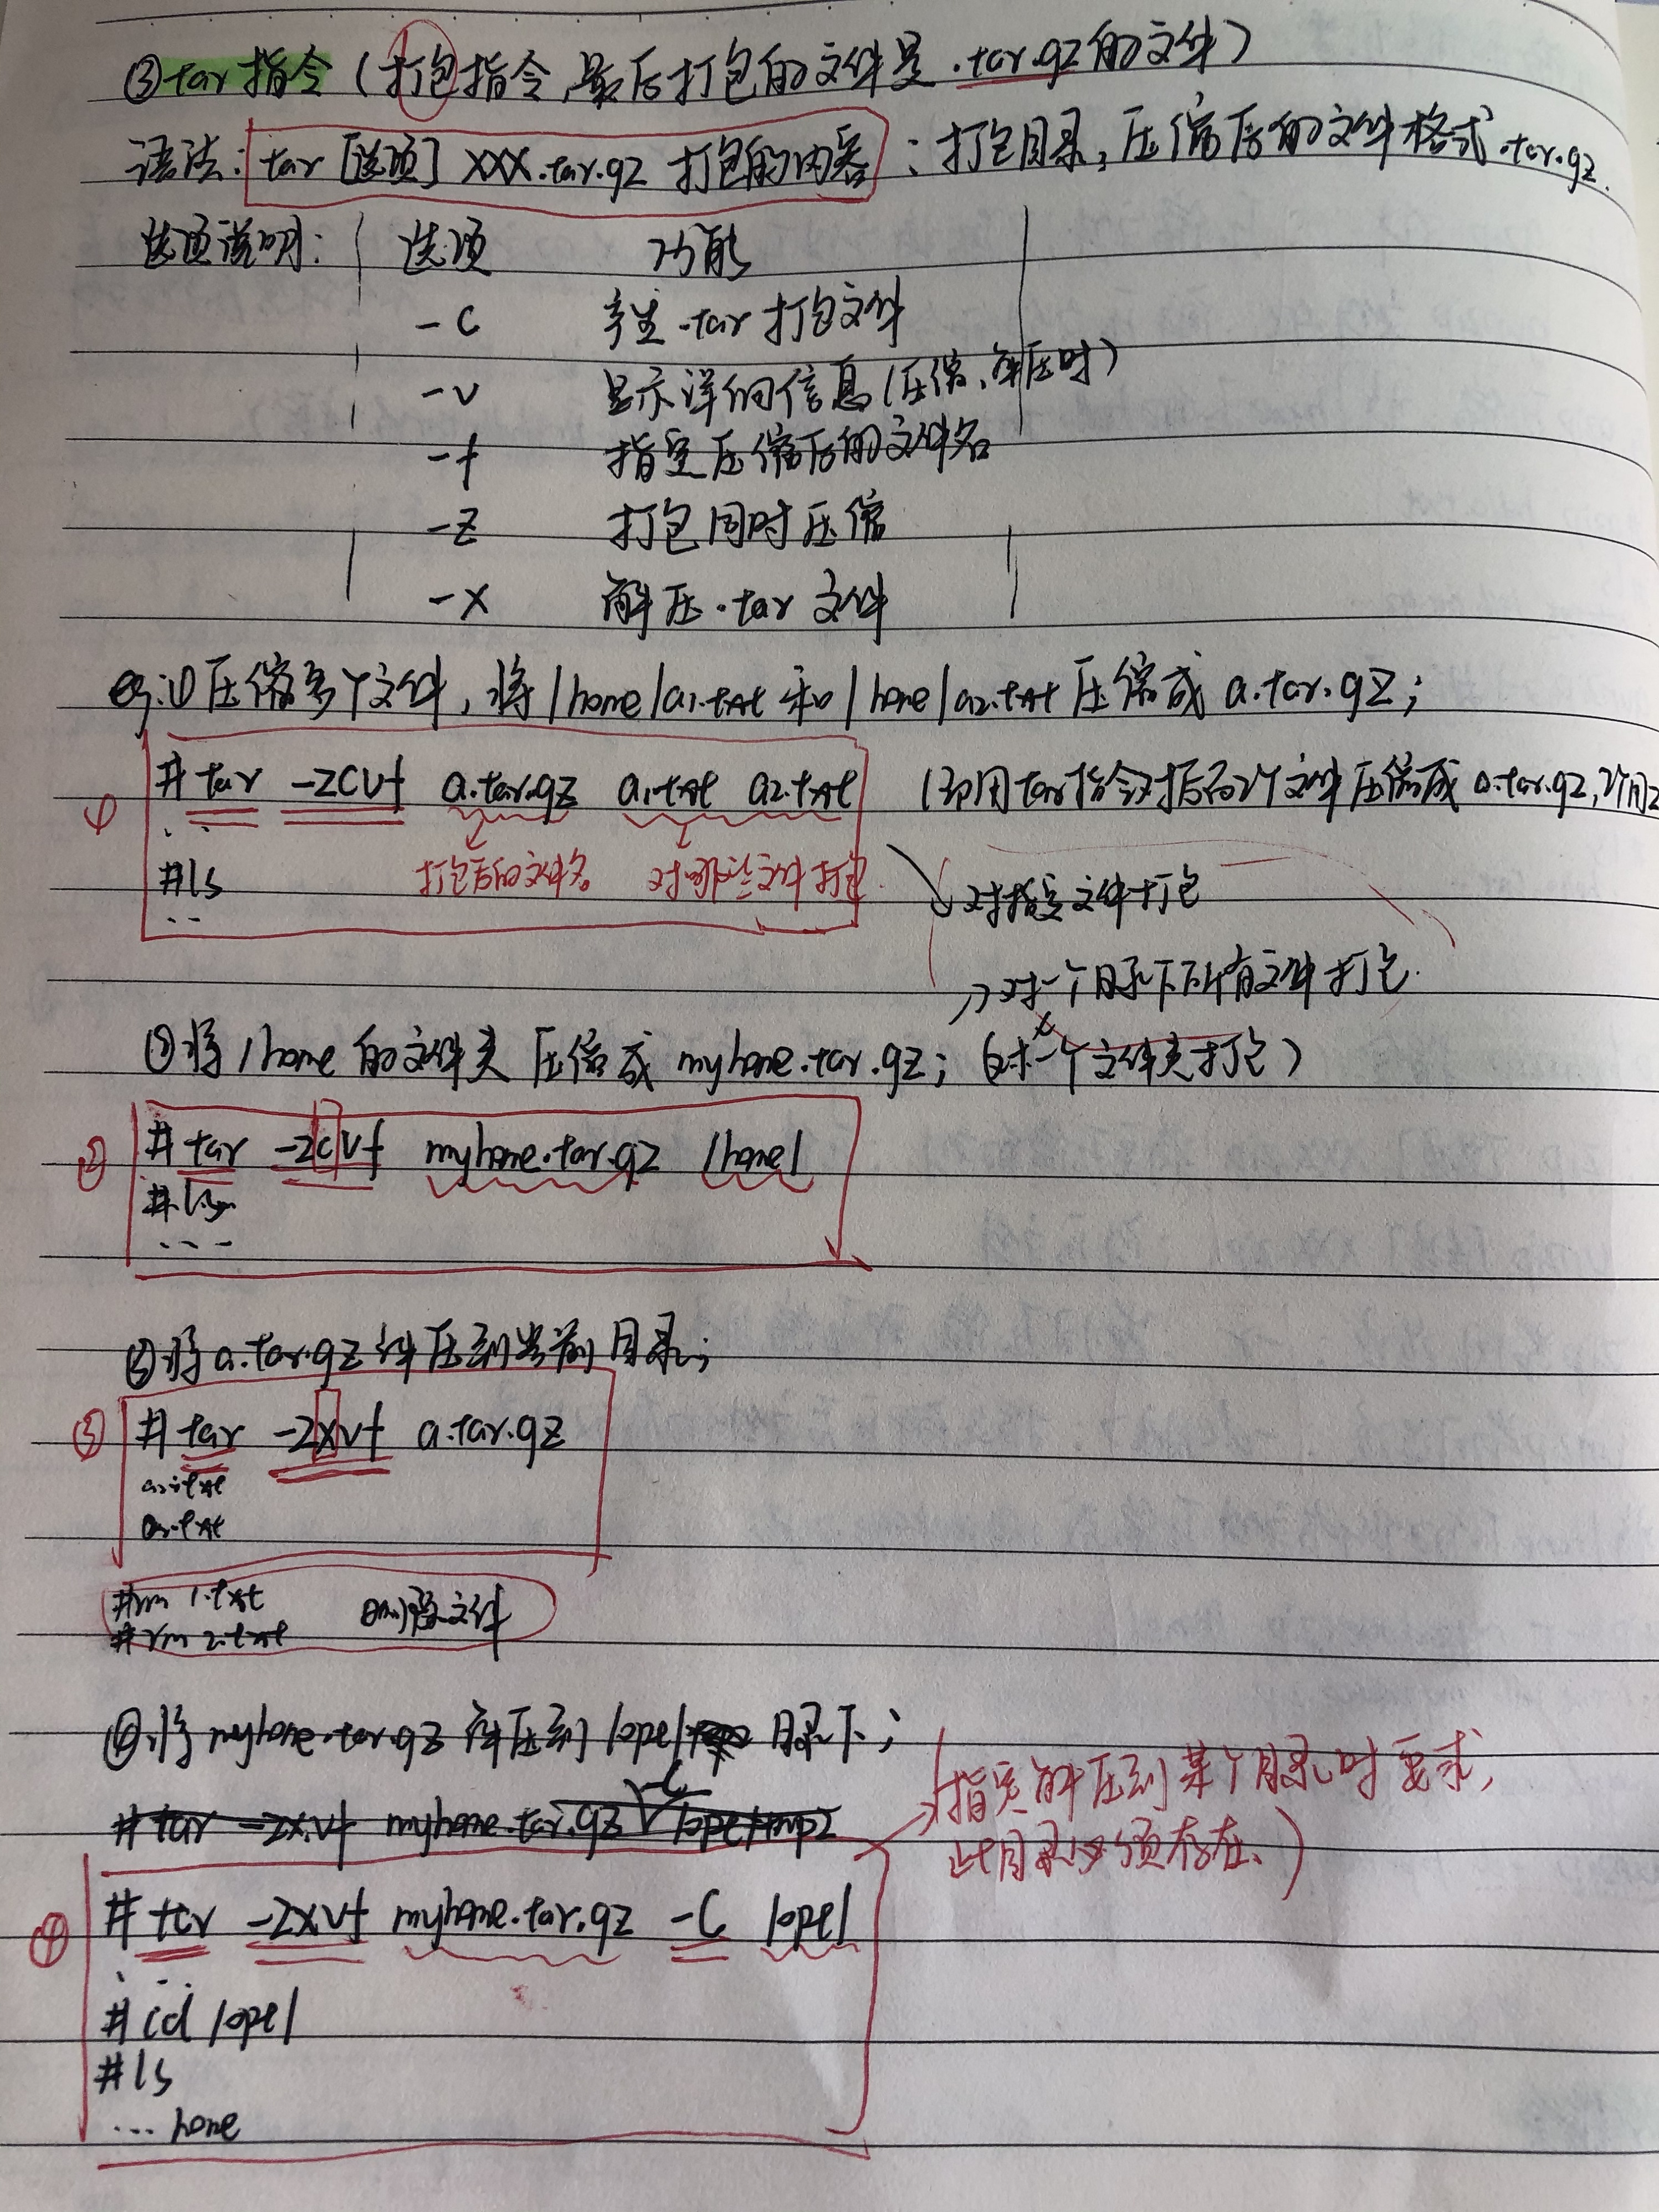 ③tar 指令（打包指令,最后打包的文件是 .tar.gz的文件）
语法: tar [选项] XXX.tar.gz 打包的内容 ：打包目录,压缩后的文件格式.tar.gz.
选项说明: 选项 功能
-c 产生.tar打包文件
-v 显示详细信息(压缩、解压时)
-f 指定压缩后的文件名
-z 打包同时压缩
-x 解压.tar 文件
eg:① 压缩多个文件,将/home/a1.txt 和/home/a2.txt 压缩成 a.tar.gz;
① # tar -zcvf a.tar.gz a1.txt a2.txt (即用tar指令对后面2个文件压缩成 a.tar.gz,
打包后的文件名 对哪些文件打包.
#ls
→对指定文件打包
→对一个目录下所有文件打包.
②将/home 的文件夹 压缩成 myhome.tar.gz; (对一个文件夹打包)
② # tar -zcvf myhome.tar.gz /home/
# ls
...
③将a.tar.gz 解压到当前目录;
③ # tar -zxvf a.tar.gz
a1.txt
a2.txt
#rm 1.txt
#rm 2.txt
删除文件
④将myhome.tar.gz 解压到 /ope/ 目录下;
# tar -zxvf myhome.tar.gz -C /ope/tmp2
(指定解压到某个目录时要求,
此目录必须存在、)
④ # tar -zxvf myhome.tar.gz -C /ope/
...
# cd /ope/
# ls
... home